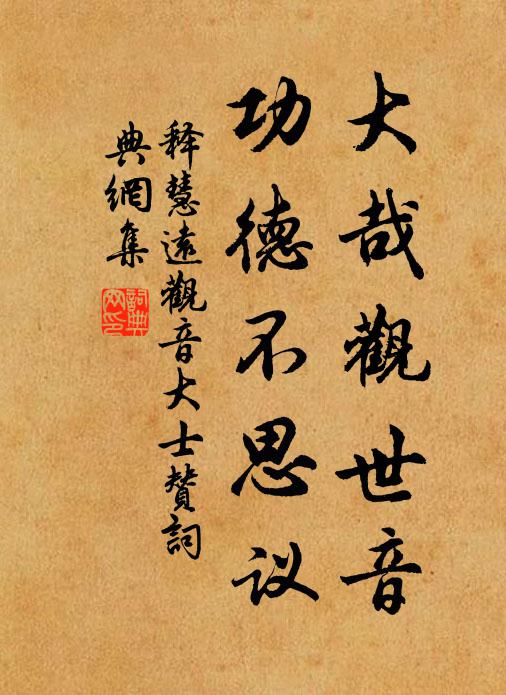 大哉觀世音
功德不思议
释慧遠觀音大士贊詞
典網集
詞典
网印